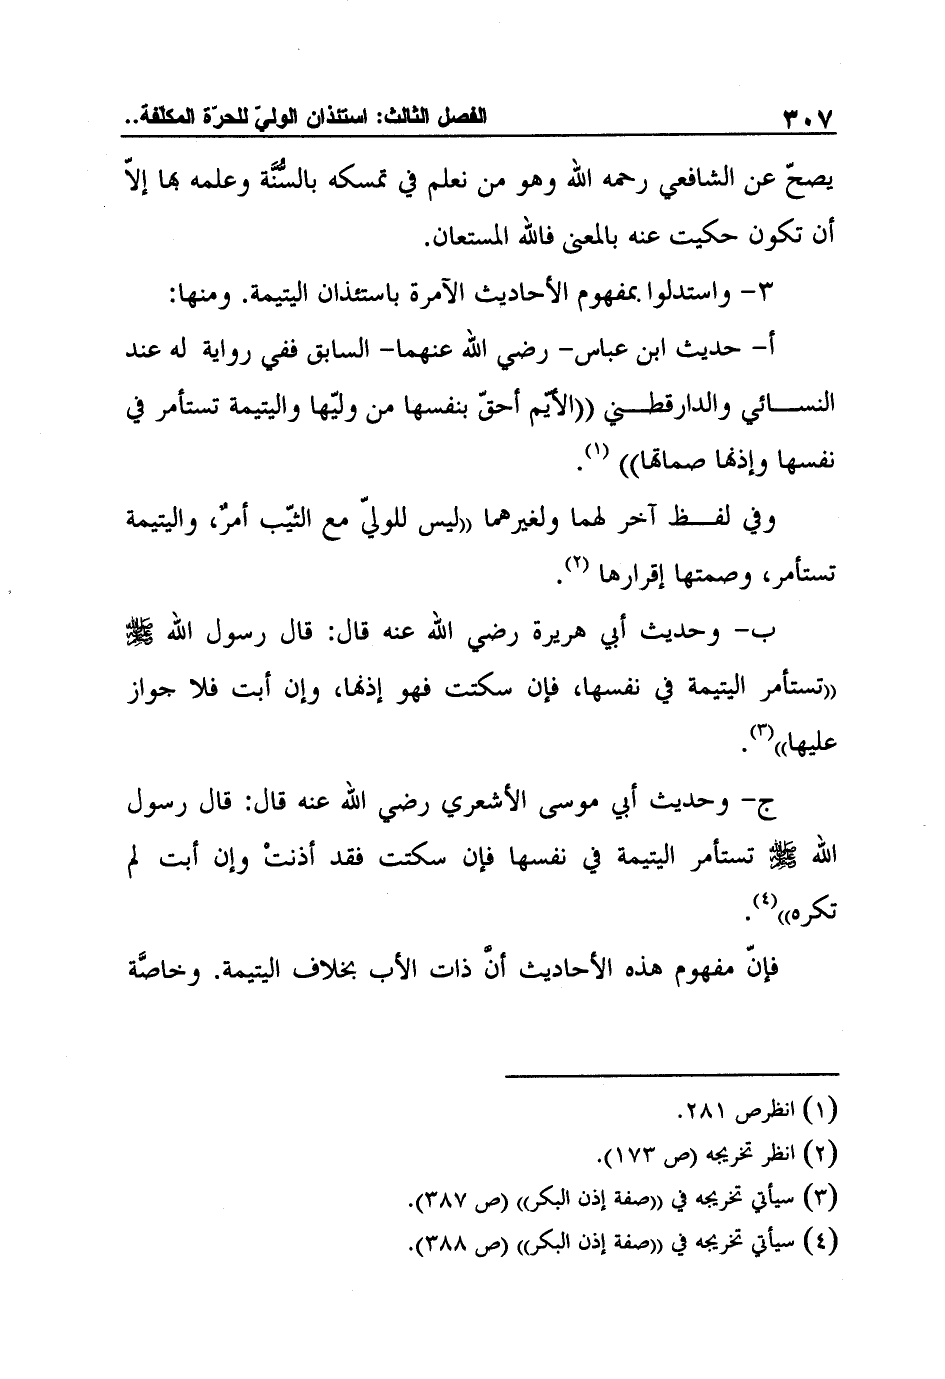 ٣٠٧ الفصل الثالث: استئذان الوليّ للحرّة المكلّفة..
يصحّ عن الشافعي رحمه الله وهو من نعلم في تمسكه بالسُّنَّة وعلمه بها إلاّ
أن تكون حكيت عنه بالمعنى فالله المستعان.
٣- واستدلوا بمفهوم الأحاديث الآمرة باستئذان اليتيمة. ومنها:
أ- حديث ابن عباس- رضي الله عنهما- السابق ففي رواية له عند
النسـائي والدارقطـني ((الأيّم أحقّ بنفسها من وليّها واليتيمة تستأمر في
نفسها وإذنها صماتها)) (١).
وفي لفـظ آخر لهما ولغيرهما ((ليس للوليّ مع الثيّب أمرٌ، واليتيمة
تستأمر، وصمتها إقرارها (٢).
ب- وحديث أبي هريرة رضي الله عنه قال: قال رسول الله ﷺ
((تستأمر اليتيمة في نفسها، فإن سكتت فهو إذنها، وإن أبت فلا جواز
عليها))(٣).
ج- وحديث أبي موسى الأشعري رضي الله عنه قال: قال رسول
الله ﷺ تستأمر اليتيمة في نفسها فإن سكتت فقد أذنتْ وإن أبت لم
تكره))(٤).
فإنّ مفهوم هذه الأحاديث أنَّ ذات الأب بخلاف اليتيمة. وخاصَّة
(١) انظرص ٢٨١.
(٢) انظر تخريجه (ص ١٧٣).
(٣) سيأتي تخريجه في ((صفة إذن البكر)) (ص ٣٨٧).
(٤) سيأتي تخريجه في ((صفة إذن البكر)) (ص ٣٨٨).